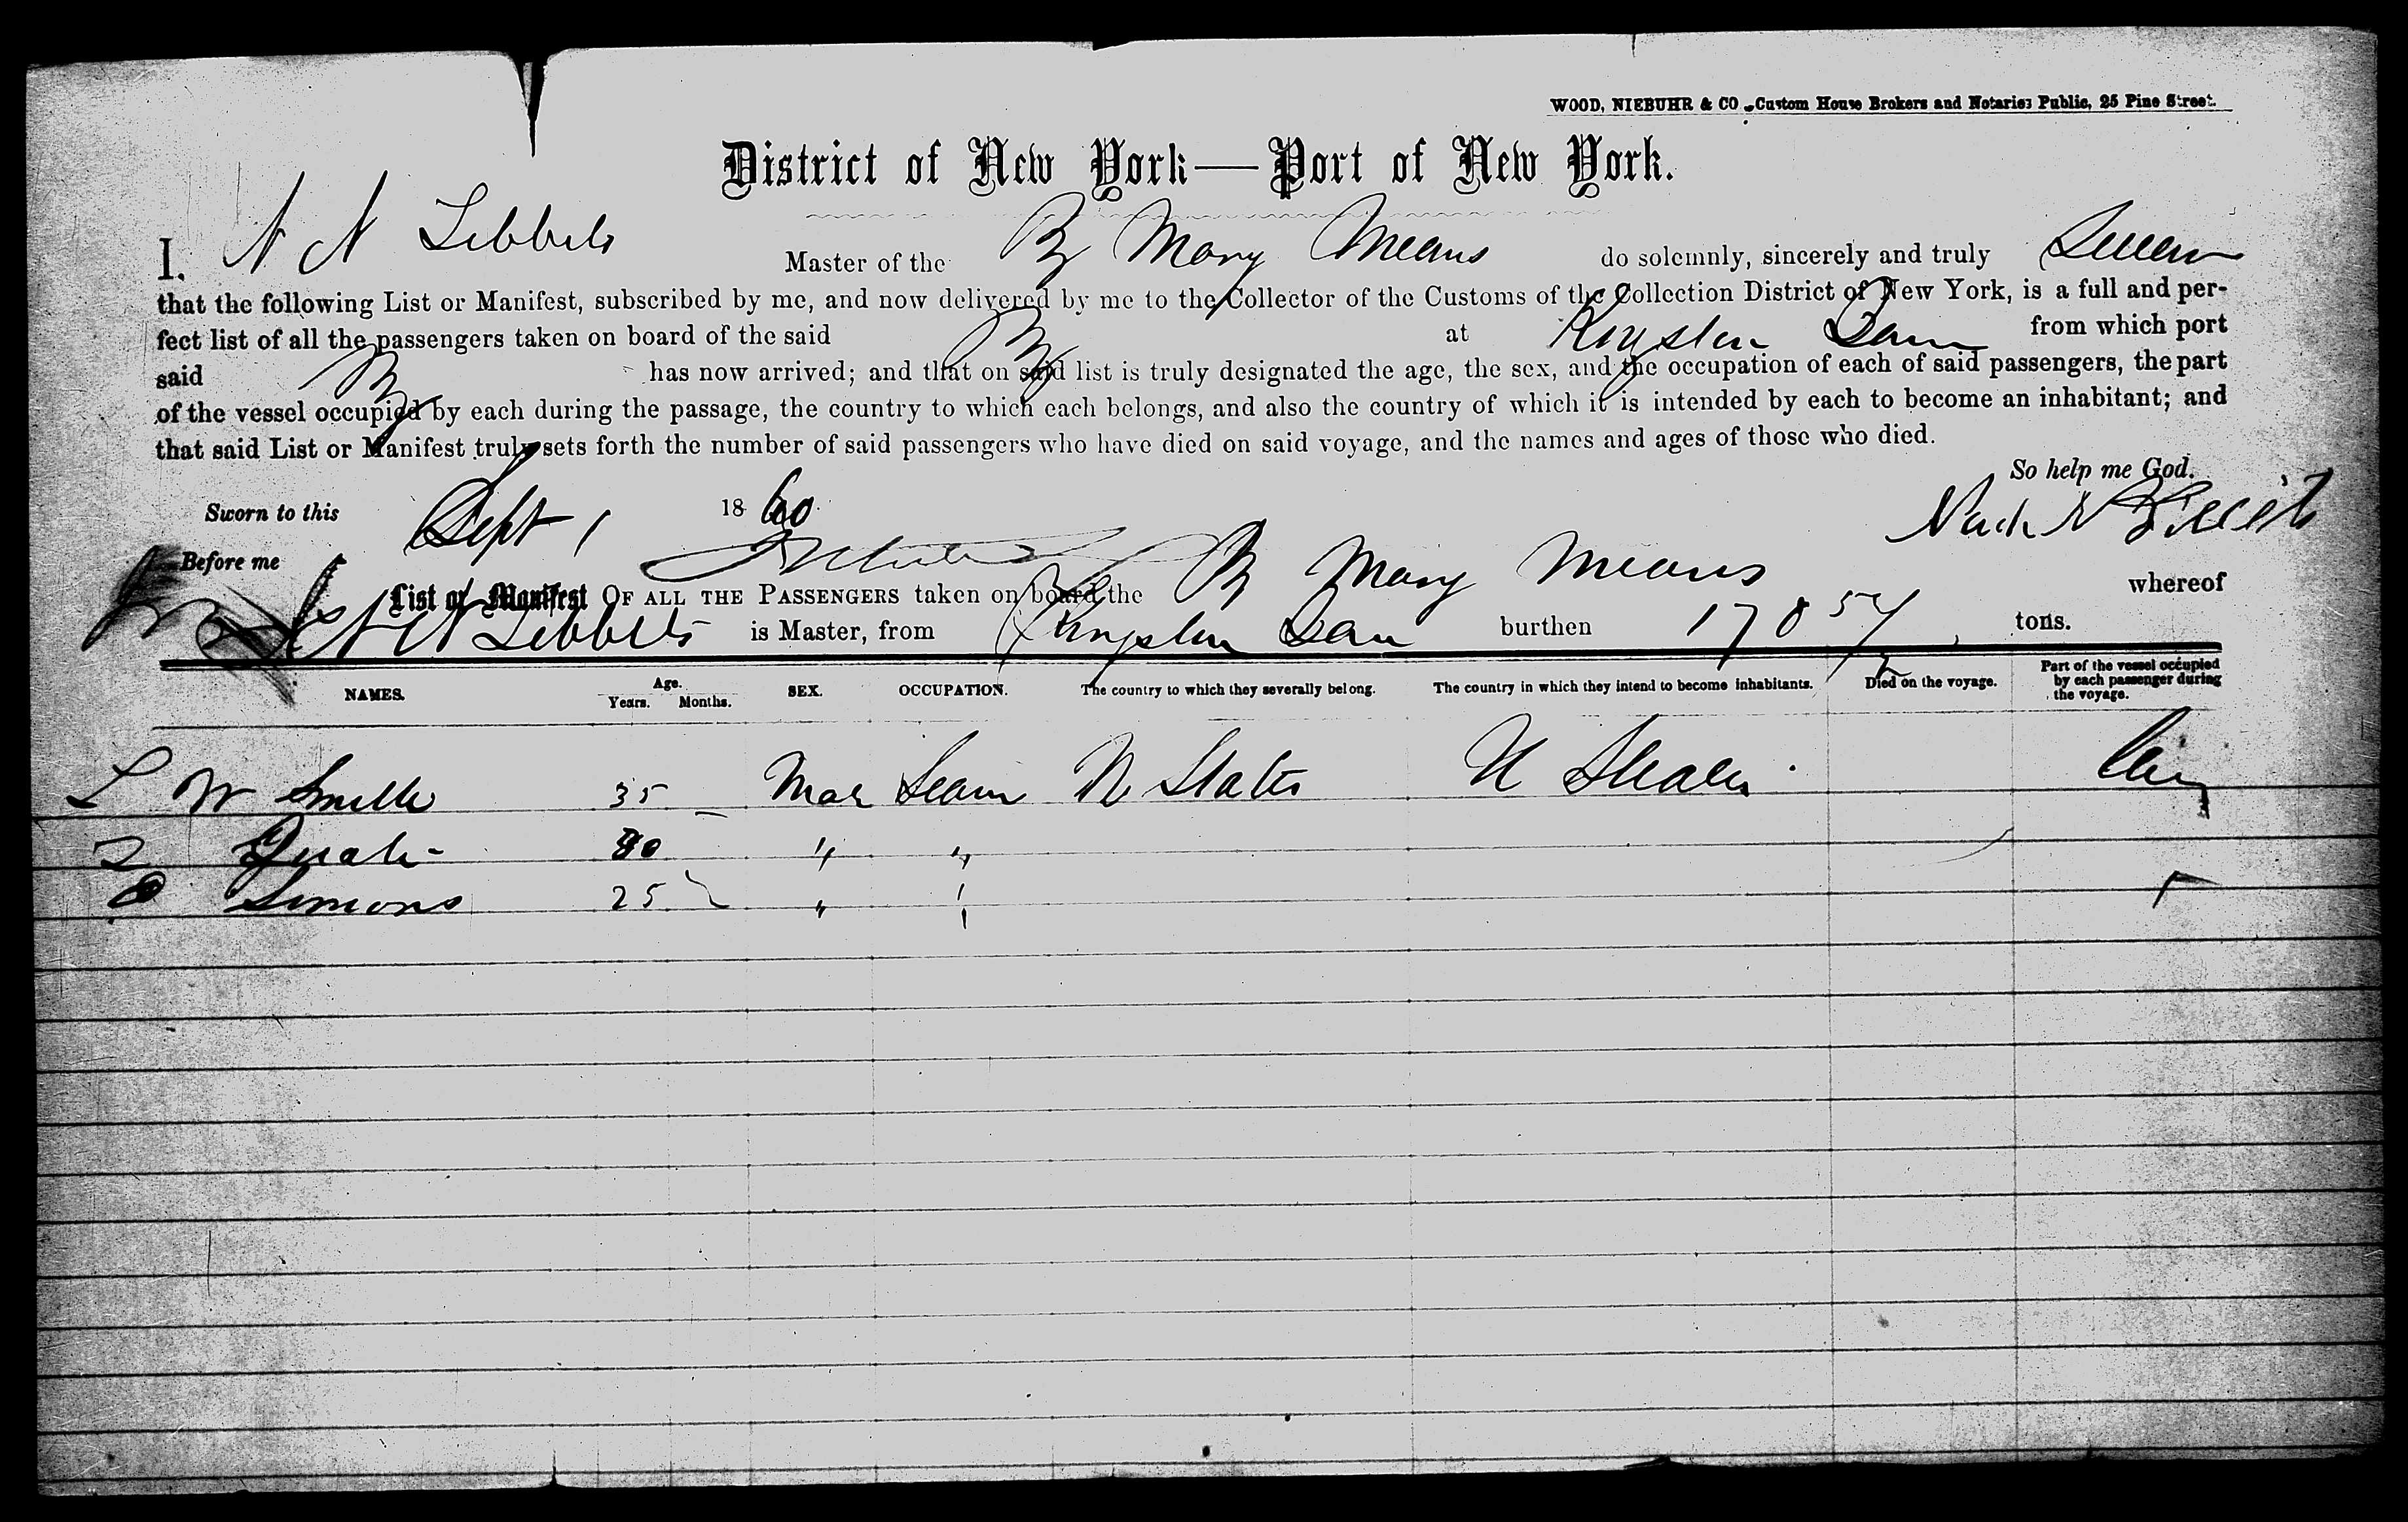 WOOD, NIEBUHR & CO., Custom House Brokers and Notaries Public, 25 Pine Street.
District of New York—Port of New York.
I, N N Tebbets Master of the Bg Mary Means do solemnly, sincerely and truly Swear
that the following List or Manifest, subscribed by me, and now delivered by me to the Collector of the Customs of the Collection District of New York, is a full and per-
fect list of all the passengers taken on board of the said Bg at Kingston Jam from which port
said Bg has now arrived; and that on said list is truly designated the age, the sex, and the occupation of each of said passengers, the part
of the vessel occupied by each during the passage, the country to which each belongs, and also the country of which it is intended by each to become an inhabitant; and
that said List or Manifest truly sets forth the number of said passengers who have died on said voyage, and the names and ages of those who died.
So help me God.
Sworn to this Sept 1 1860
Before me
List or Manifest OF ALL THE PASSENGERS taken on board the Bg Mary Means whereof
N N Tebbets is Master, from Kingston Jam burthen 178 tons.
NAMES. Age. Years. Months. SEX. OCCUPATION. The country to which they severally belong. The country in which they intend to become inhabitants. Died on the voyage. Part of the vessel occupied by each passenger during the voyage.
W Smith 35 Male Seam U States U States
" "
Simons 25 "